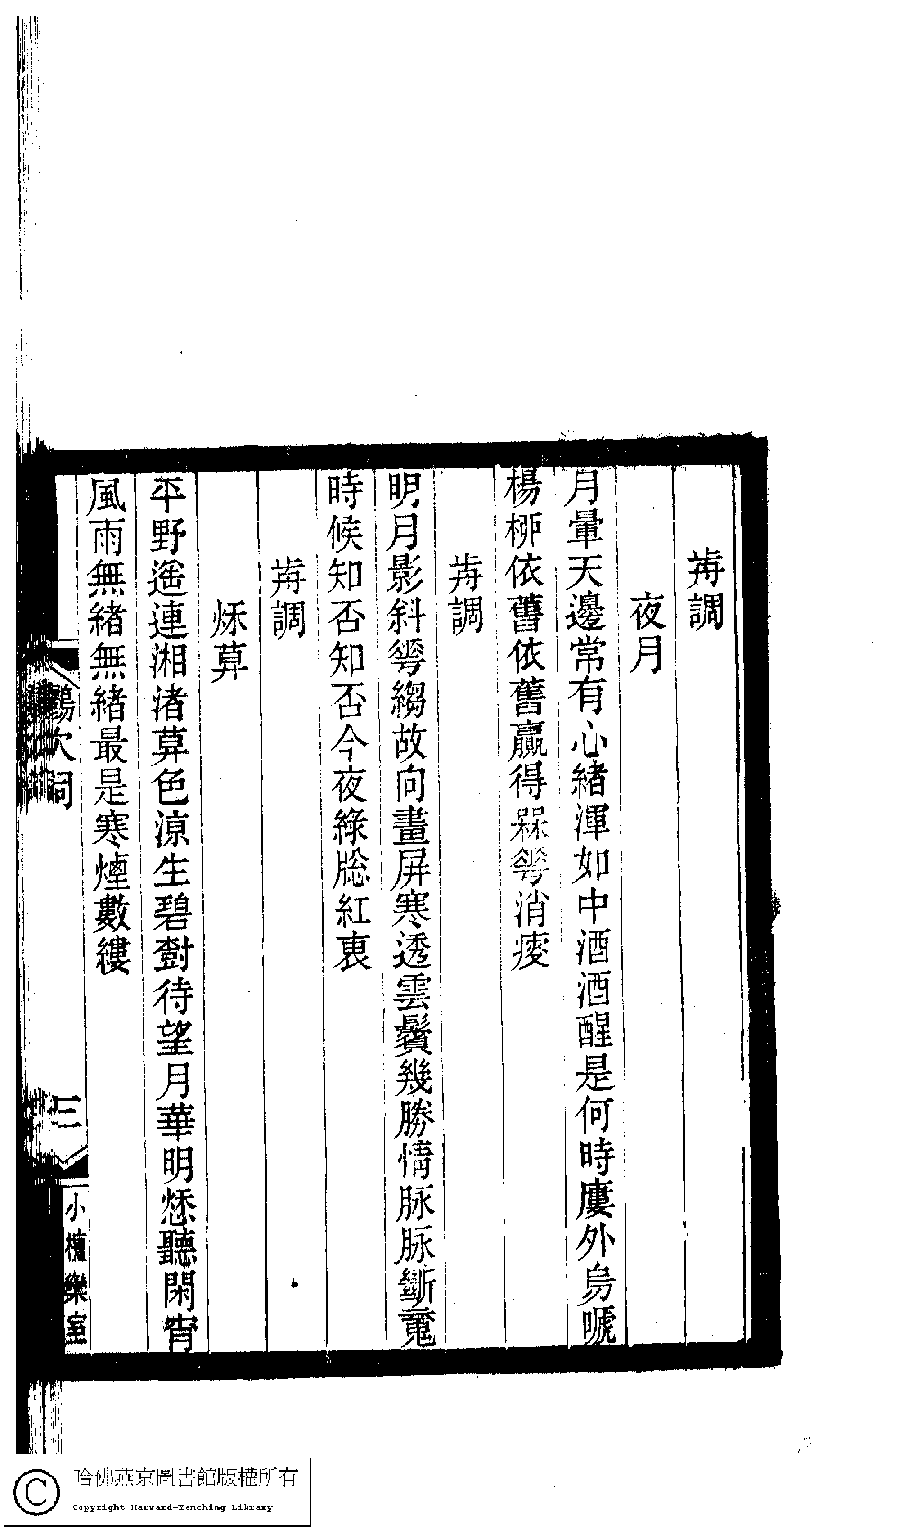 前調
夜月
月暈天邊常有心緒渾如中酒酒醒是何時廔外烏嗁
楊柳依舊依舊贏得槑䓿消瘦
前調
明月影斜䓿縐故向畫屏寒透雲鬢幾勝情脉脉斷䰟
時候知否知否今夜綠牎紅裏
前調
秌草
平野遥連湘渚草色涼生碧對待望月華明愁聽閑宵
風雨無緒無緒最是寒煙數縷
次詞
三
小檀欒室
哈佛燕京圖書館版權所有
Copyright Harvard-Yenching Library